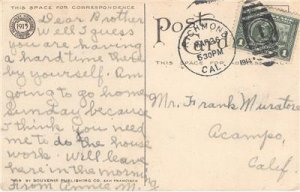 THIS SPACE FOR CORRESPONDENCE
POST
Card
1915
Dear Brother
Well I guess
you are having
a hard time trying
by yourself. Am
going to go home
Sunday because
I think you need
me to do the house
work. Will leave
here in the morning
From Annie M.
5 30 PM
CAL.
THIS SPACE FOR ADDRESS
Mr. Frank Muratore
Acampo,
Calif
BY SOUVENIR PUBLISHING CO. SAN FRANCISCO